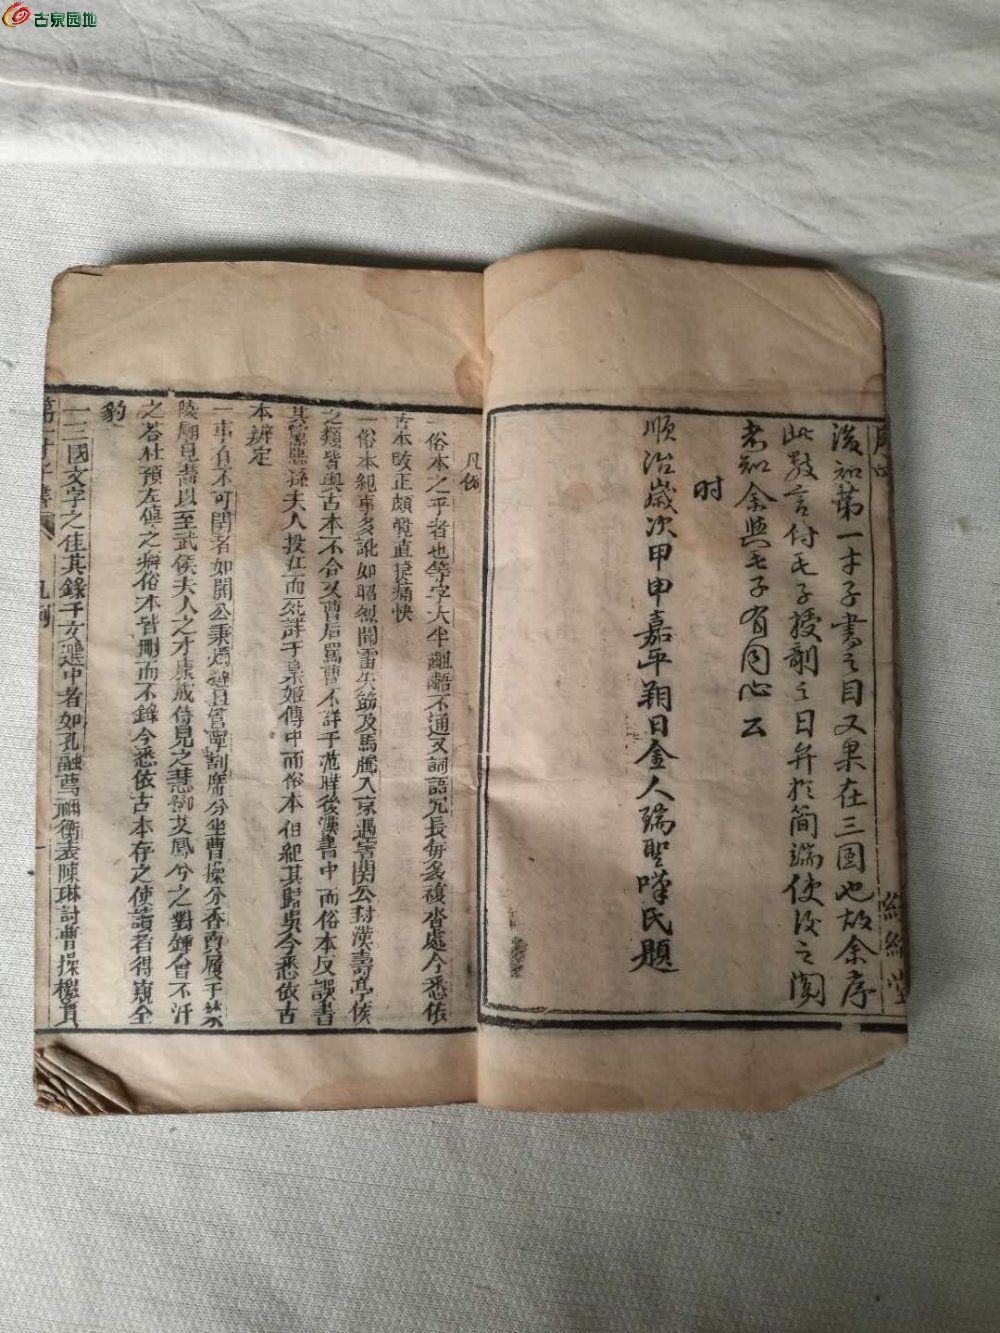 古泉园地
後知第一才子書之目又果在三國也故余序
此數言付毛子授剞之日弁於簡端使後之閱
者知余與毛子有同心云
时
順治歲次甲申嘉平朔日金人瑞聖嘆氏題
凡例
一俗本之乎者也等字大半齟齬不通又詞語冗長每多複沓處今悉依
古本改正頗覺直捷痛快
一俗本紀事多訛如昭烈聞雷失筯及馬騰入京遇害關公封漢壽亭侯
之類皆與古本不合又曹后罵曹丕詳于范曄後漢書中而俗本反誤書
其黨惡孫夫人投江而死詳于梟姬傳中而俗本但紀其歸吳今悉依古
本辨定
一事有不可闕者如關公秉燭達旦管寧割席分坐曹操分香賣履于禁
陵廟見畫以至武侯夫人之才康成侍兒之慧鄧艾鳳兮之對鍾會不汗
之答杜預左傳之癖俗本皆刪而不錄今悉依古本存之使讀者得窺全
豹
一三國文字之佳其錄于文選中者如孔融薦禰衡表陳琳討曹操檄實